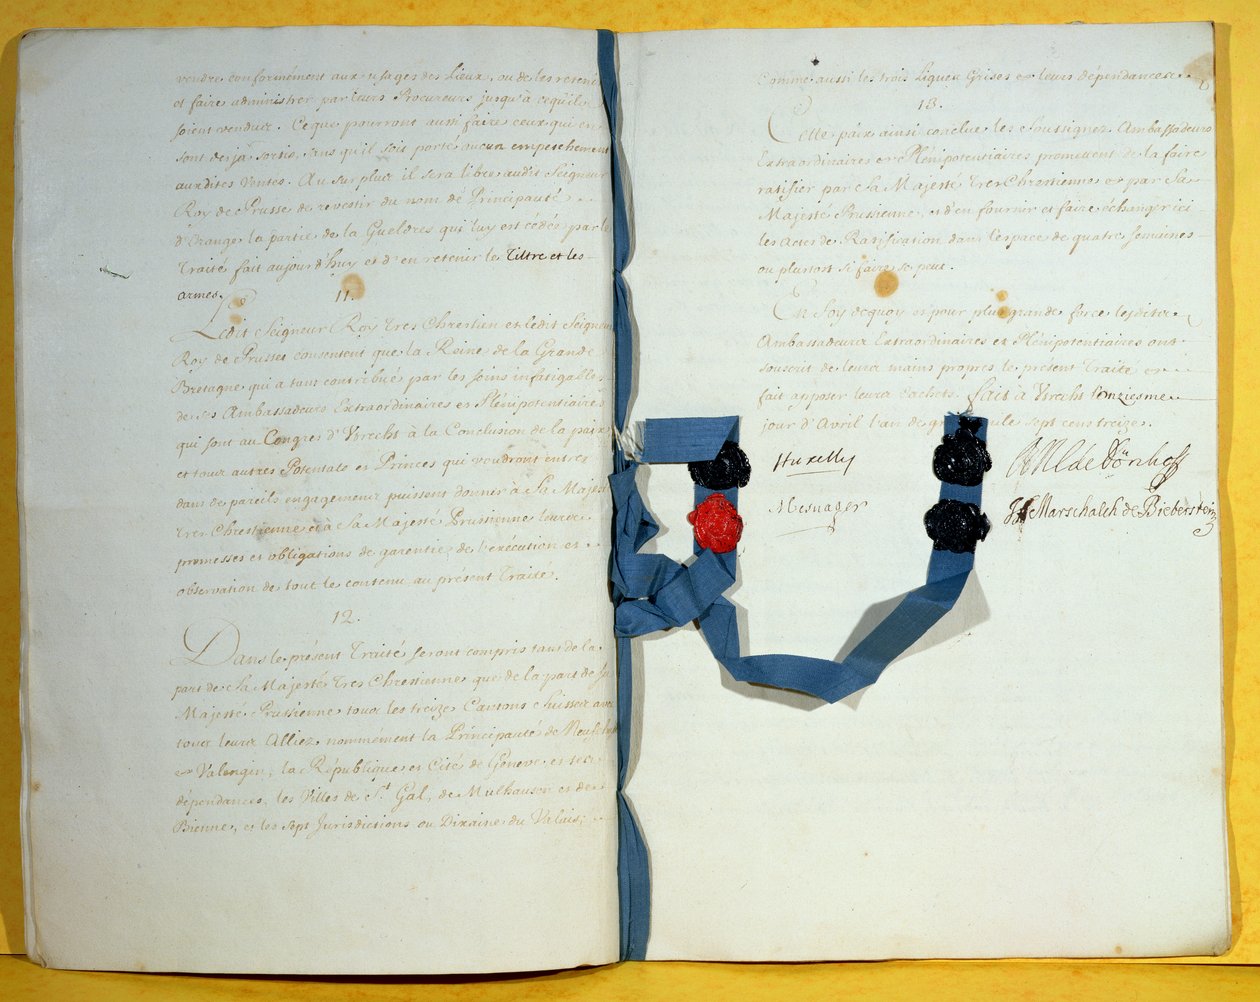 vendre conformément aux usages des Lieux, ou de les retenir
et faire administrer par leurs Procureurs jusqu'à ce qu'ils
soient vendus. Ce que pourront aussi faire ceux qui en
sont desja sortis, sans qu'il soit porté aucun empeschement
auxdites Ventes. Au surplus il sera libre audit Seigneur
Roy de Prusse de revestir du nom de Principauté
d'Orange la partie de la Gueldres qui luy est cédée par le
Traité fait aujourd'huy et d'en retenir le Tiltre et les
armes.
11.
Ledit Seigneur Roy tres Chrestien et ledit Seigneur
Roy de Prusse consentent que la Reine de la Grande
Bretagne qui a tant contribué par les soins infatigables
de ses Ambassadeurs Extraordinaires et Plénipotentiaires
qui sont au Congres d'Utrecht à la Conclusion de la paix
et tous autres Potentats et Princes qui voudront entrer
dans de pareils engagements puissent donner à Sa Majesté
tres Chrestienne et à Sa Majesté Prussienne leurs
promesses et obligations de garentie, de l'exécution et
observation de tout le contenu au présent Traité.
12.
Dans le présent Traité seront compris tant de la
part de Sa Majesté tres Chrestienne que de la part de Sa
Majesté Prussienne tous les treize Cantons Suisses avec
tous leurs Alliez, nommément la Principauté de Neufchastel
et Valengin, la République et Cité de Genève, et ses
dépendances, les Villes de St Gal, de Mulhausen et de
Bienne, et les sept Jurisdictions ou Dixaine du Valais,
Comme aussi les trois Ligues Grises et leurs dépendances.
13.
Cette paix ainsi conclue les Soussignez Ambassadeurs
Extraordinaires et Plénipotentiaires promettent de la faire
ratifier par Sa Majesté Tres Chrestienne et par Sa
Majesté Prussienne, et d'en fournir et faire échanger ici
les Actes de Ratification dans l'espace de quatre semaines
ou plustost si faire se peut.
En foy de quoy et pour plus grande force lesdits
Ambassadeurs Extraordinaires et Plénipotentiaires ont
souscrit de leurs mains propres le présent Traité et
fait apposer leurs cachets. Fait à Utrecht l'onziesme
jour d'Avril l'an de gr ule sept cens treize.
Huxelles
Mesnager
OMC de Dönhoff
JF Marschalch de Bieberstein